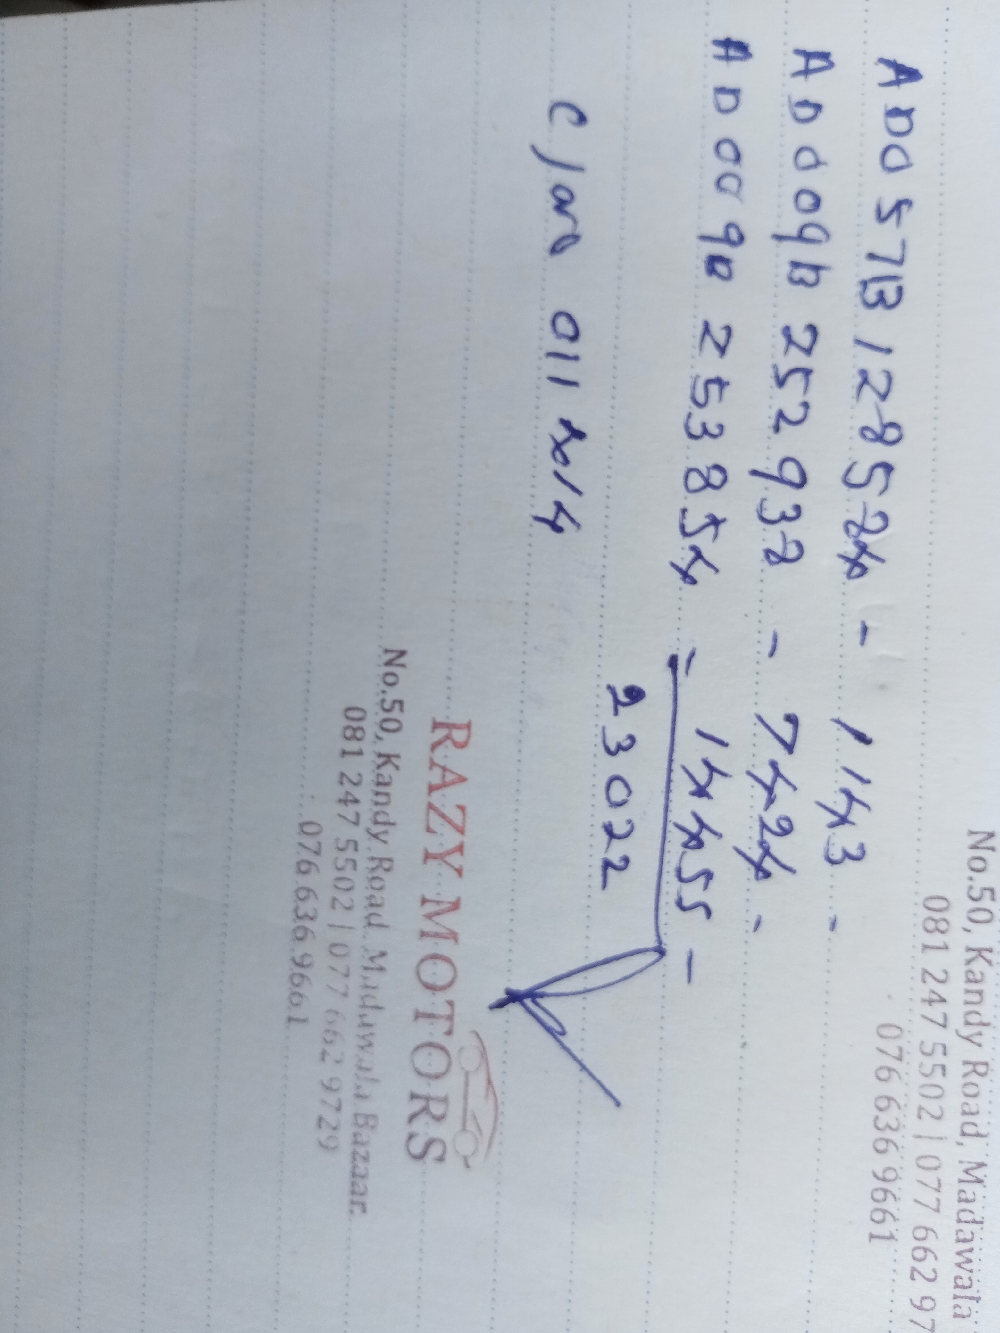 No.50, Kandy Road, Madawala
081 247 5502 | 077 662 97
076 636 9661
AD057B128584 - 1143 -
AD009B 252938 - 7424 -
AD009B 253854 - 14455 -
23022
011
RAZY MOTORS
No.50, Kandy Road, Madawala Bazaar.
081 247 5502 | 077 662 9729
076 636 9661